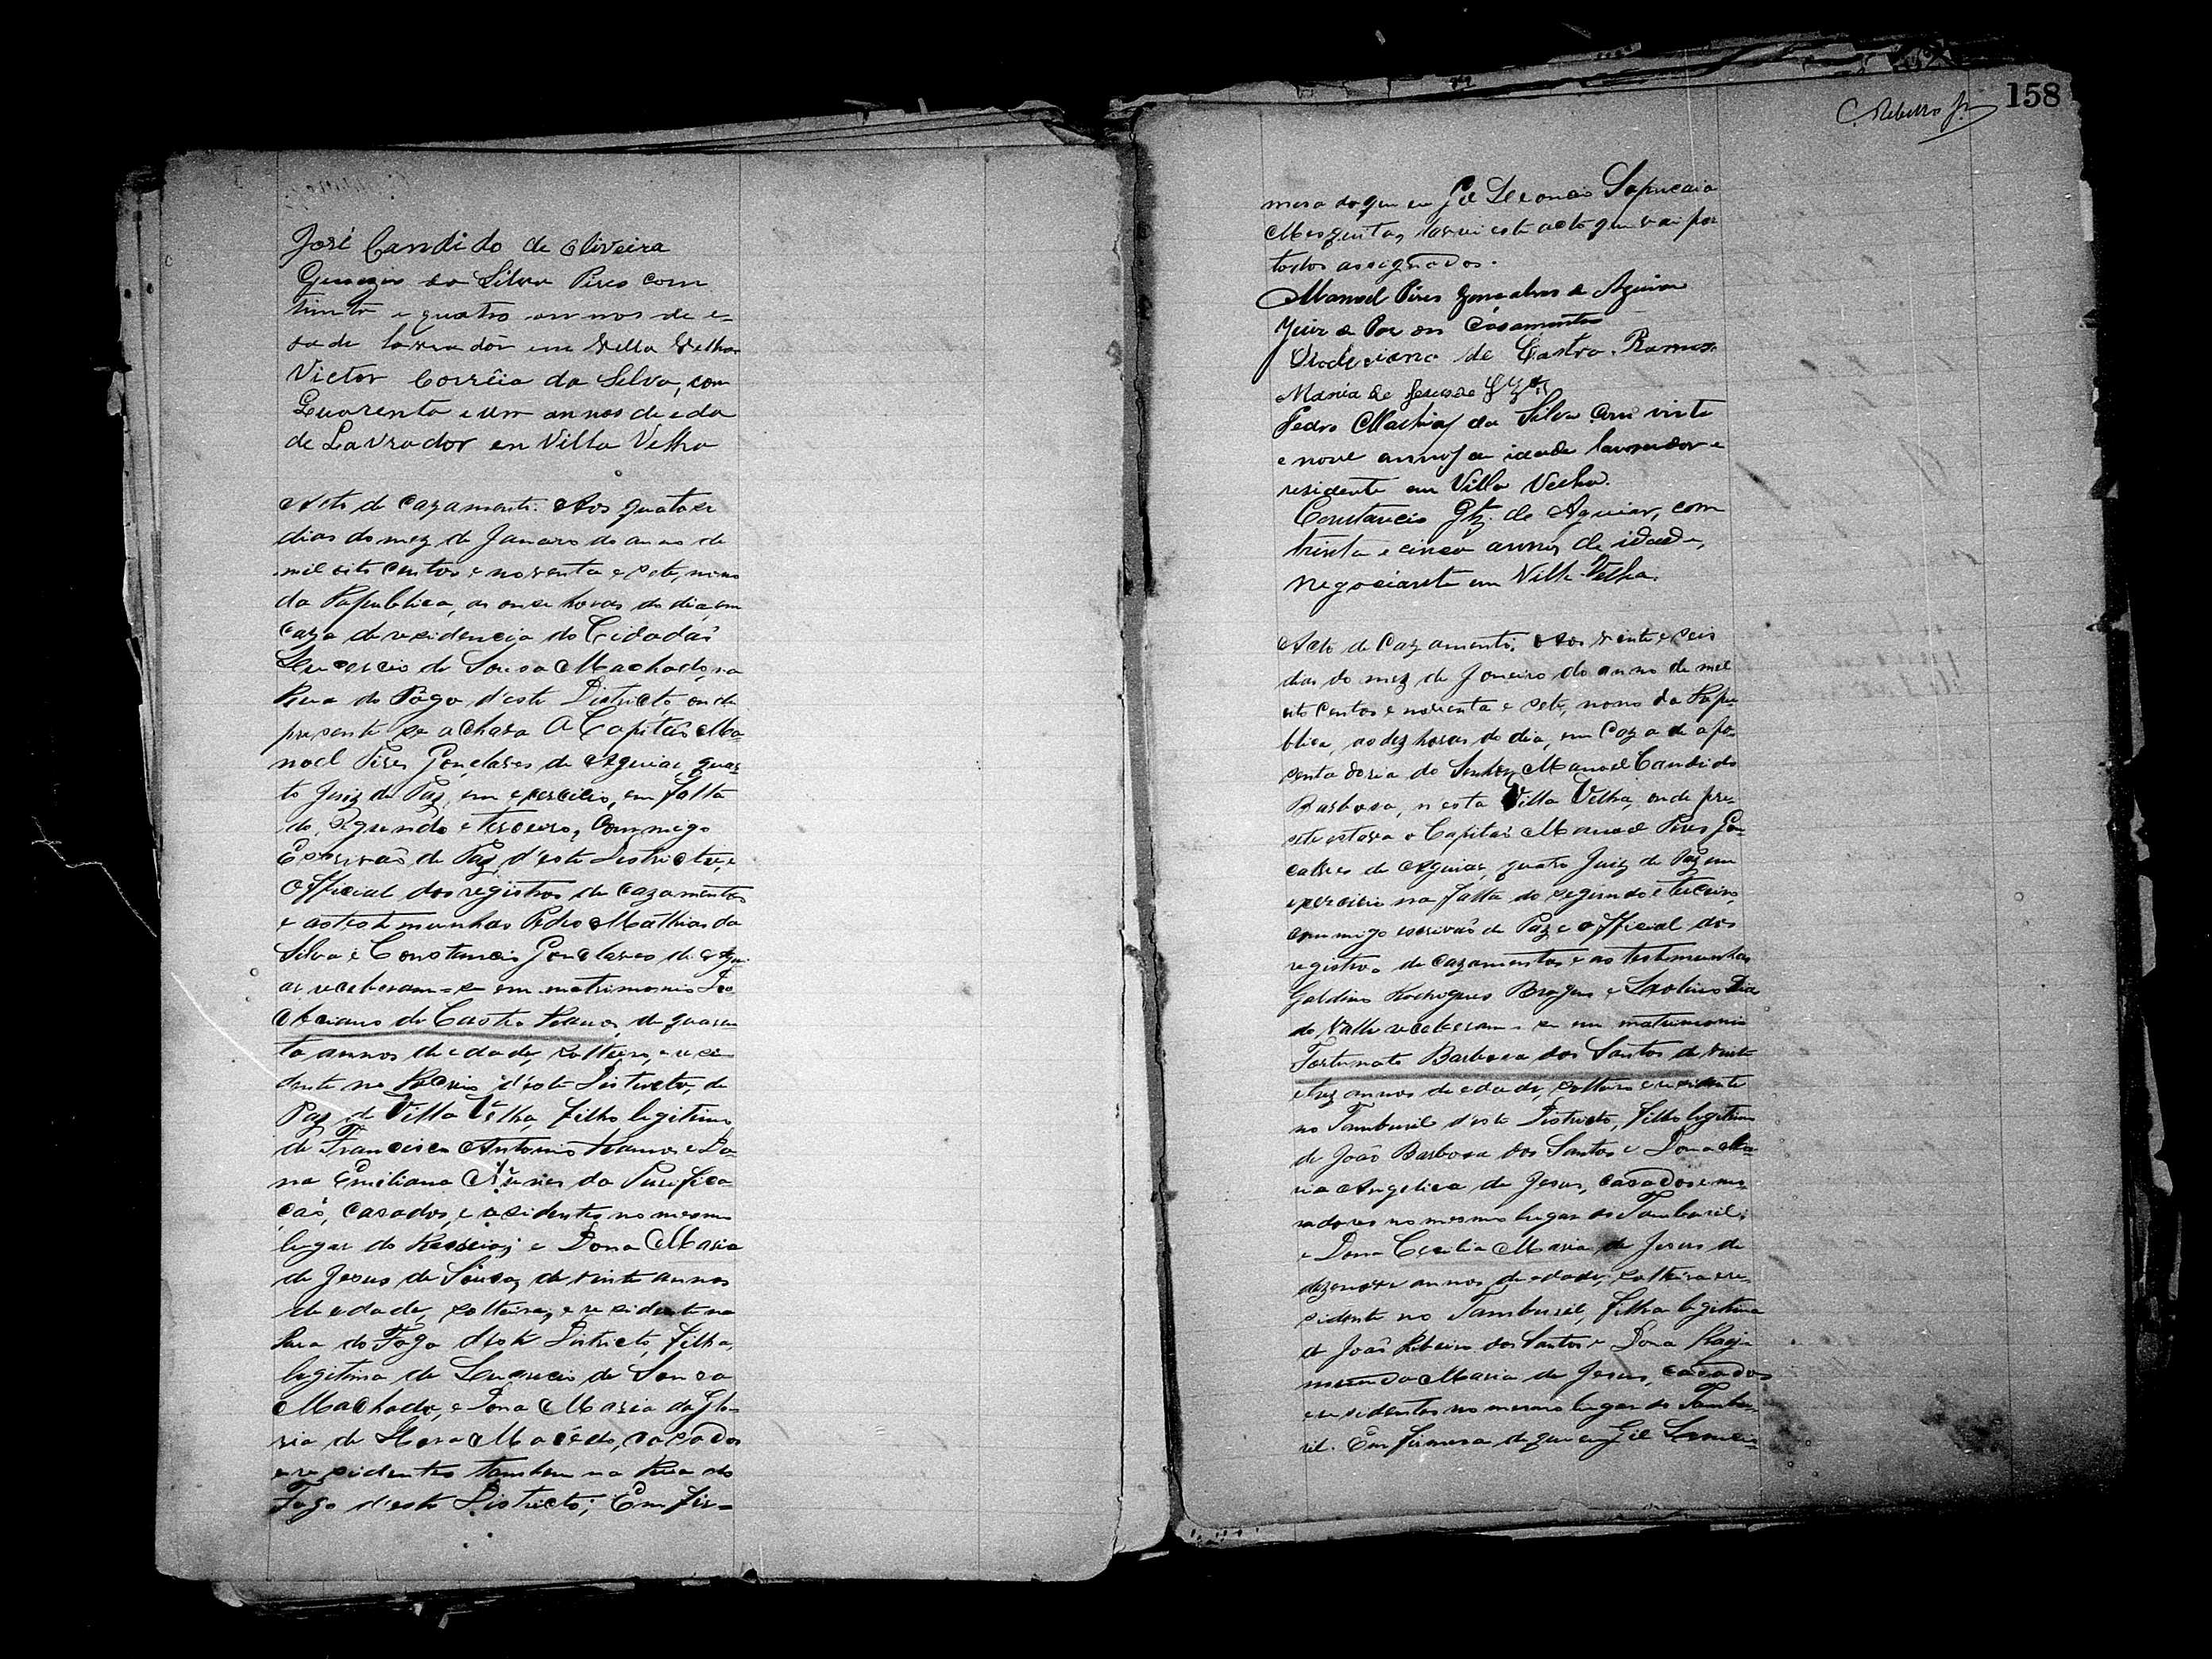 José Candido de Oliveira
da Silva Pires com
trinta e quatro annos de e-
dade lavrador em Villa Velha
Victor Corrêia da Silva, com
Quarenta e um annos de eda
de Lavrador en Villa Velha
Acto de Cazamento. Aos quatorze
dias do mez de Janeiro do anno de
mil oito centos e noventa e sete, nono
da Republica, as onze horas do dia, em
Caza de residencia do Cidadaõ
de Sousa Machado, na
Rua do Fogo d'este Districto, onde
presente se achava O Capitaõ Ma-
noel Pires Gonçalves de Aguiar quar-
to Juiz de Paz, em exercicio, em falta
do Segundo e terceiro, Commigo
Escrivaõ de Paz d'este Districto, e
Official dos registros de cazamentos
e as testemunhas Pedro Mathias da
Silva e Constancio Gonçalves de Agui
ar receberam-se em matrimonio Deo
cleciano de Castro Ramos, de quaren
ta annos de edade, solteiro, e resi
dente no d'este Districto, de
Paz de Villa Velha, filho legitimo
de Francisco Antonio Ramos e Do-
na Emiliana Nunes da Purifica
caõ, casados, e residentes no mesmo
lugar do e Dona Maria
de Jesus de Sousa, de vinte annos
de edade, solteira, e residente na
Rua do Fogo deste Districto, filha
legitima de de Sousa
Machado, e Dona Maria da Glo-
ria de Macêdo, casados
e residentes tambem na Rua do
Fogo d'este Districto; Em fir-
158
C. Ribeiro Jr
mesa do que eu Gil Leoncio Sapucaia
Mesquita, lavrei este acto que vai por
todos assignados.
Manoel Pires Gonsalves de Aguiar
Juiz de Paz em Casamentos
Deocleciano de Castro Ramos
Maria de Jesus de
Pedro Mathias da Silva com vinte
e nove annos de idade lavrador e
residente em Villa Velha.
Constancio Glz. de Aguiar, com
trinta e cinco annos de idade,
negociante em Villa-Velha.
Acto de Cazamento. Aos vinte e seis
dias do mez de Janeiro do anno de mil
oito centos e noventa e sete, nono da Repu-
blica, as dez horas do dia, em Caza de apo-
sentadoria do Senhor Manoel Candido
Barbosa, n'esta Villa Velha, onde pre-
sente estava o Capitaõ Manoel Pires Gon-
calves de Aguiar, quarto Juiz de Paz em
exercicio na falta do segundo e terceiro,
commigo escrivaõ de Paz e official dos
registros de cazamentos e as testemunhas
Galdino Rodrigues Bragas e Dia
do Valle receberam-se em matrimonio
Fortunato Barbosa dos Santos de vinte
e trez annos de edade, solteiro e residente
no Tamburil d'este Districto, filho legitimo
de João Barbosa dos Santos e Dona Ma-
ria Angelica de Jesus, casados e mo-
radores no mesmo lugar do Tamburil;
e Dona Cecilia Maria de Jesus de
dezenove annos de edade, solteira e re-
sidente no Tamburil, filha legitima
de João Ribeiro dos Santos e Dona Ray-
munda Maria de Jesus, casados
e residentes no mesmo lugar do Tambu-
ril. Em firmesa do que eu Gil Leonci-